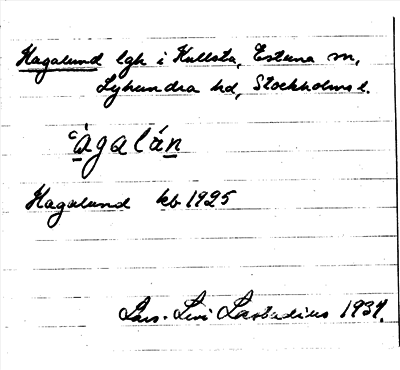 Hagalund lgh i Kullsta, Estuna sn,
Lyhundra hd, Stockholms l.
ˈàgalán
Hagalund kb 1925
Lars-Levi Læstadius 1934.